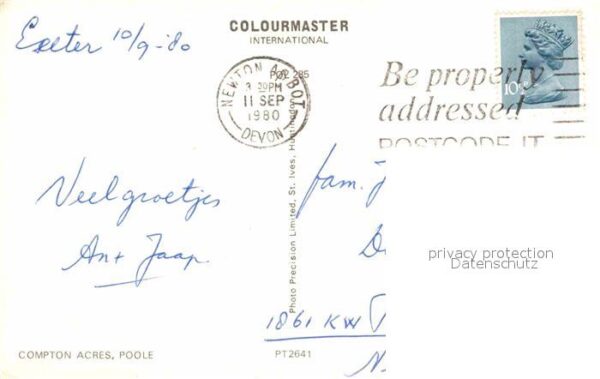 Exeter 10/9-'80
COLOURMASTER
INTERNATIONAL
PQZ 285
NEWTON ABBOT
3 30PM
11 SEP
1980
DEVON
Be properly
addressed
POSTCODE IT
10P
Veel groetjes
An + Jaap.
fam. J
D
1861 KW
N.
privacy protection
Datenschutz
Photo Precision Limited, St. Ives, Huntingdon
COMPTON ACRES, POOLE
PT2641